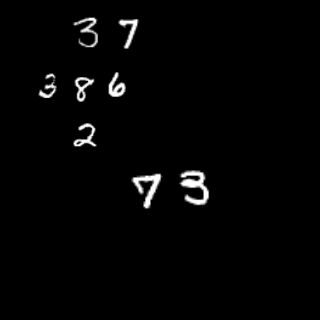 3 7
3 8 6
2
7 3